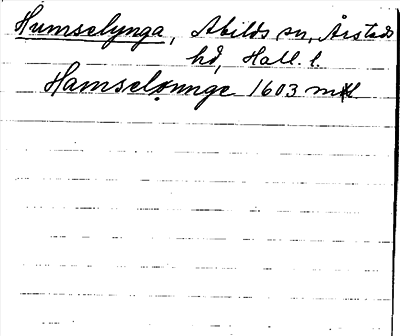 Humselynga, Abilds sn, Årstads
hd, Hall. l.
Hamseløunge 1603 mtl